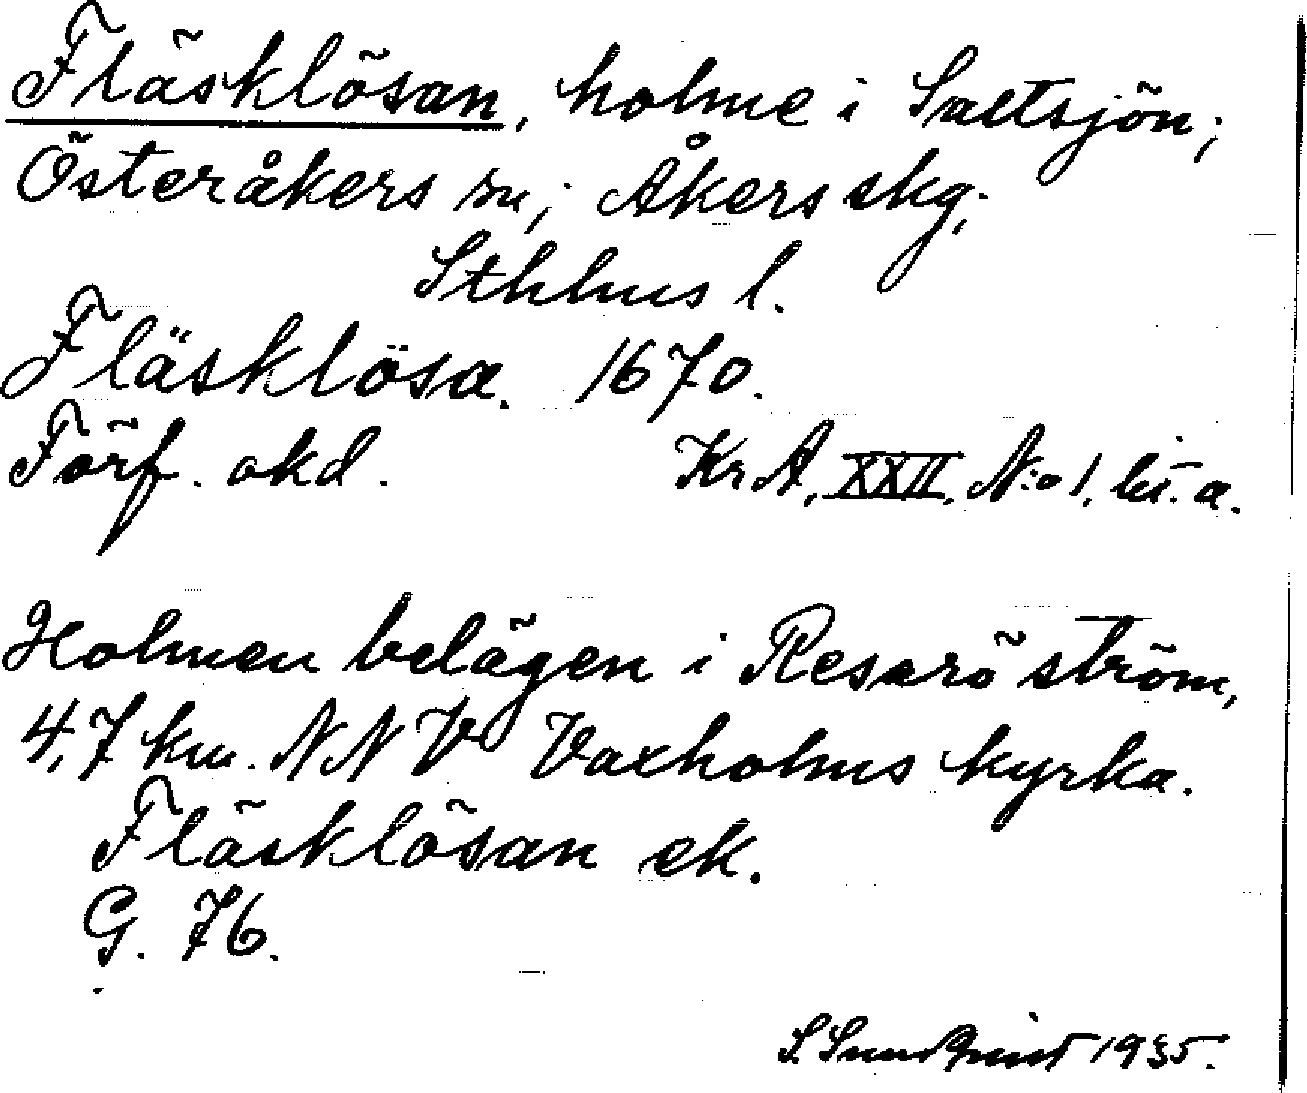 Fläsklösan, holme i Saltsjön;
Österåkers sn; Åkers skg;
Sthlms l.
Fläsklösa. 1670.
Förf. okd. Kr A, XXII, N:o 1, lit. a.
Holmen belägen i Resarö ström,
4,7 km. NNV Vaxholms kyrka.
Fläsklösan ek.
G. 76.
S. Sundqvist 1935.